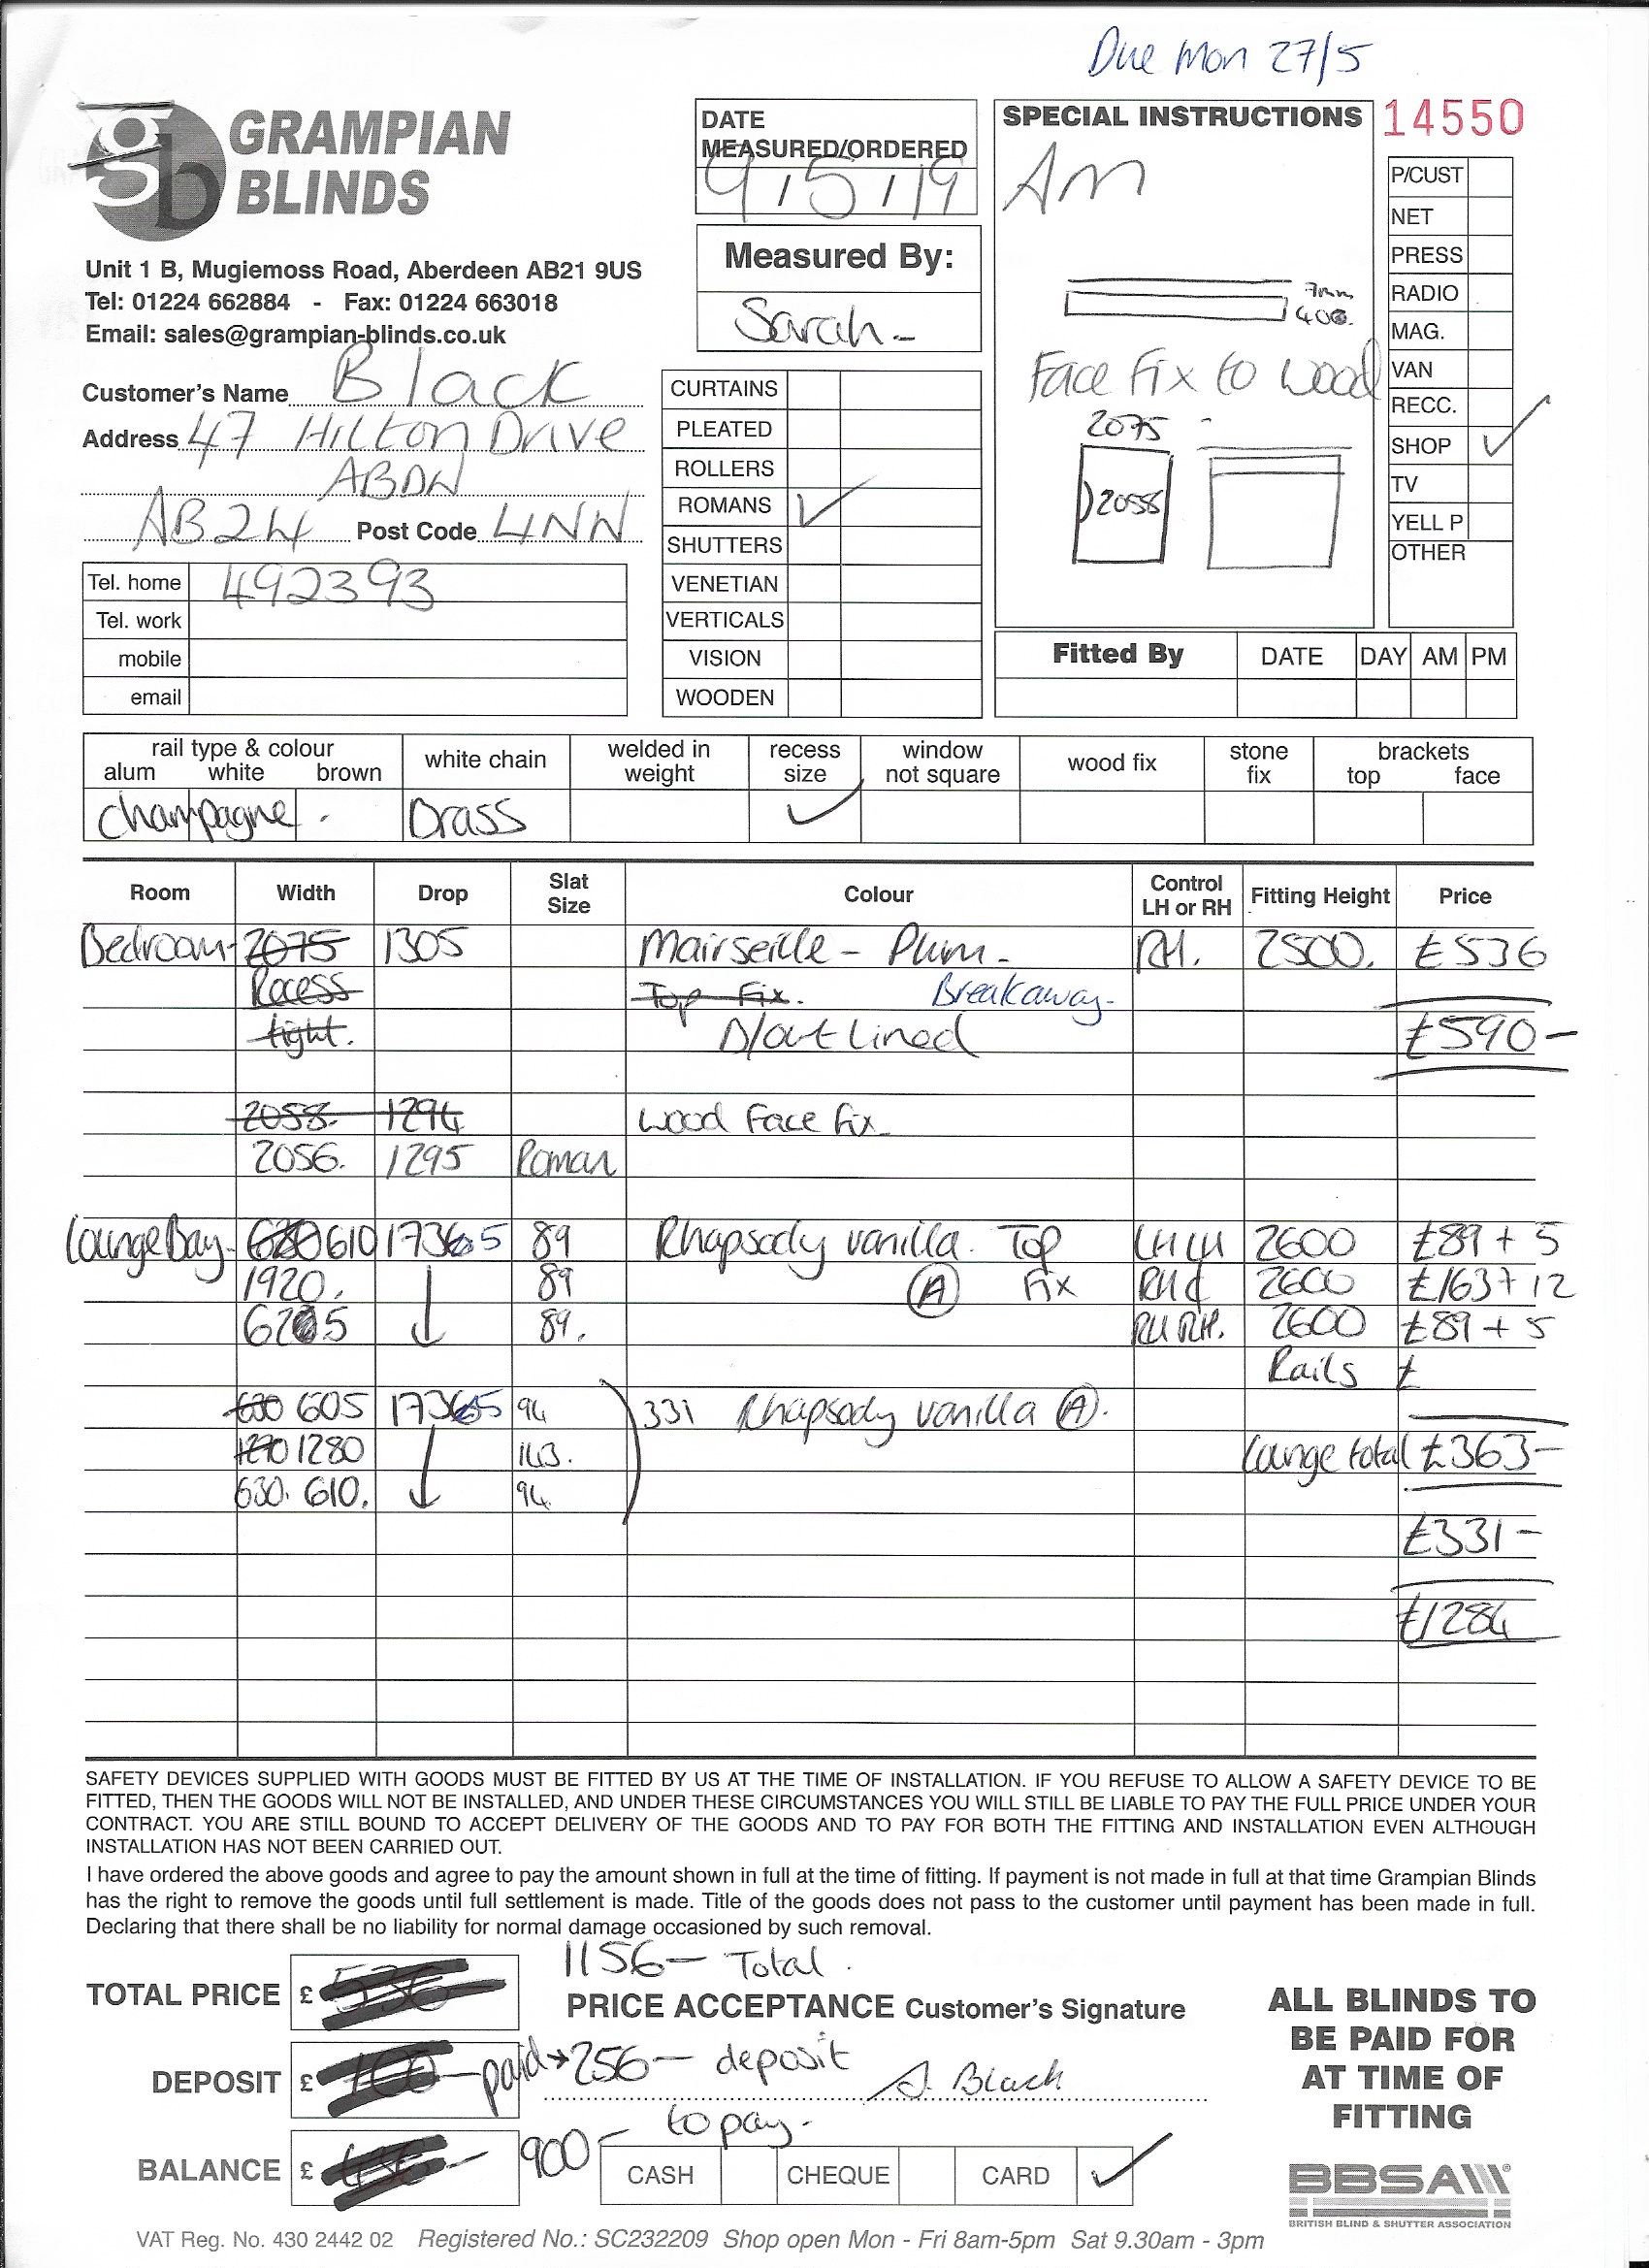 Due Mon 27/5
GRAMPIAN
BLINDS
Unit 1 B, Mugiemoss Road, Aberdeen AB21 9US
Tel: 01224 662884 - Fax: 01224 663018
Email: sales@grampian-blinds.co.uk
Customer's Name Black
Address 47 Hilton Drive
ABDN
AB24 Post Code 4NN
Tel. home 492393
Tel. work
mobile
email
DATE
MEASURED/ORDERED
9/5/19
Measured By:
Sarah-
CURTAINS
PLEATED
ROLLERS
ROMANS ✓
SHUTTERS
VENETIAN
VERTICALS
VISION
WOODEN
SPECIAL INSTRUCTIONS
Am
7mm
400.
Face Fix to wood
2075
2055
14550
P/CUST
NET
PRESS
RADIO
MAG.
VAN
RECC.
SHOP ✓
TV
YELL P
OTHER
Fitted By DATE DAY AM PM
rail type & colour
alum white brown
white chain
welded in weight
recess size
window not square
wood fix
stone fix
brackets
top face
Champagne Brass ✓
Room Width Drop Slat Size Colour Control LH or RH Fitting Height Price
Bedroom- 2075 1305 Mairseille - Plum- RH. 2500. £536
Recess Top Fix. Breakaway-
tight. B/out Lined £590-
2058. 1294 Wood Face fix-
2056. 1295 Roman
Lounge Bay- 610 1735 89 Rhapsody vanilla. Top LH LH 2600 £89 + 5
1920. 89 (A) Fix RH 2600 £163 + 12
6205 89. RH RH. 2600 £89 + 5
Rails £
630 605 1735 94 331 Rhapsody vanilla (A).
1270 1280 143. Lounge total £363-
630. 610. 94.
£331-
£1284
SAFETY DEVICES SUPPLIED WITH GOODS MUST BE FITTED BY US AT THE TIME OF INSTALLATION. IF YOU REFUSE TO ALLOW A SAFETY DEVICE TO BE
FITTED, THEN THE GOODS WILL NOT BE INSTALLED, AND UNDER THESE CIRCUMSTANCES YOU WILL STILL BE LIABLE TO PAY THE FULL PRICE UNDER YOUR
CONTRACT. YOU ARE STILL BOUND TO ACCEPT DELIVERY OF THE GOODS AND TO PAY FOR BOTH THE FITTING AND INSTALLATION EVEN ALTHOUGH
INSTALLATION HAS NOT BEEN CARRIED OUT.
I have ordered the above goods and agree to pay the amount shown in full at the time of fitting. If payment is not made in full at that time Grampian Blinds
has the right to remove the goods until full settlement is made. Title of the goods does not pass to the customer until payment has been made in full.
Declaring that there shall be no liability for normal damage occasioned by such removal.
1156- Total.
TOTAL PRICE £ 536
PRICE ACCEPTANCE Customer's Signature
DEPOSIT £ 100- paid→256- deposit
A. Black
to pay-
BALANCE £ 900-
CASH CHEQUE CARD ✓
ALL BLINDS TO
BE PAID FOR
AT TIME OF
FITTING
BBSA
BRITISH BLIND & SHUTTER ASSOCIATION
VAT Reg. No. 430 2442 02 Registered No.: SC232209 Shop open Mon - Fri 8am-5pm Sat 9.30am - 3pm